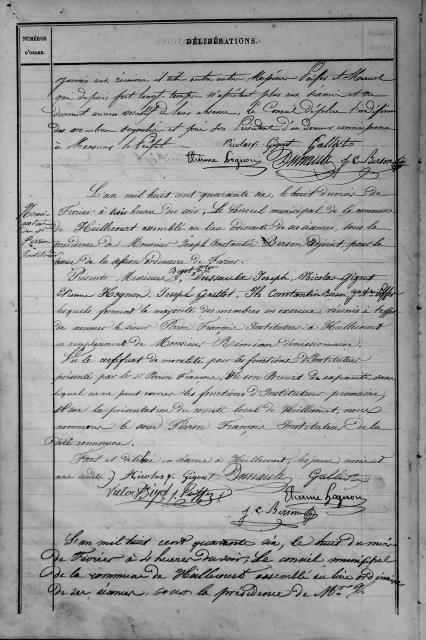 NUMÉROS
D'ORDRE.
DÉLIBÉRATIONS.
jamais aux réunions et entre autres Messieurs
qui depuis fort longtemps n'assistent plus aux séances et ne
donnent aucun motif de leur absence, le Conseil déplore l'indifférence
des membres et prie son Président d'en donner connaissance
à Monsieur le Préfet. Nicolas Gigout Galliot
Etienne Hognon Dussaulx J. C. Berson
L'an mil huit cent quarante six, le huit du mois de
Février à trois heures du soir, Le Conseil municipal de la commune
de Heillecourt assemblé au lieu ordinaire de ses séances, sous la
présidence de Monsieur Joseph Constantin Berson Adjoint, pour la
tenue de la session ordinaire de Février.
Nomi-
nation
de Sr
Perrin
Instituteur
Présents Messieurs Bigot Victor Dussaulx Joseph, Nicolas Gigout
Etienne Hognon, Joseph Galliot, Th. Constantin Berson,
lesquels forment la majorité des membres en exercice, réunis à l'effet
de nommer le sieur Perrin François Instituteur à Heillecourt
en remplacement de Monsieur démissionnaire.
Vu le certificat de moralité pour les fonctions d'Instituteur
présenté par le Sr Perrin François, et son Brevet de capacité, sans
lequel on ne peut exercer les fonctions d'Instituteur primaire,
et sur la présentation du comité local de Heillecourt, nous
nommons le sieur Perrin François Instituteur de la
dite commune.
Fait et délibéré en séance à Heillecourt, les jour, mois et
an susdits. Nicolas Gigout Dussaulx Galliot
Victor Bigot Etienne Hognon
J. C. Berson
L'an mil huit cent quarante six, le huit du mois
de Février à 4 heures du soir, Le conseil municipal
de la commune de Heillecourt assemblé au lieu ordinaire
de ses séances sous la présidence de Mr